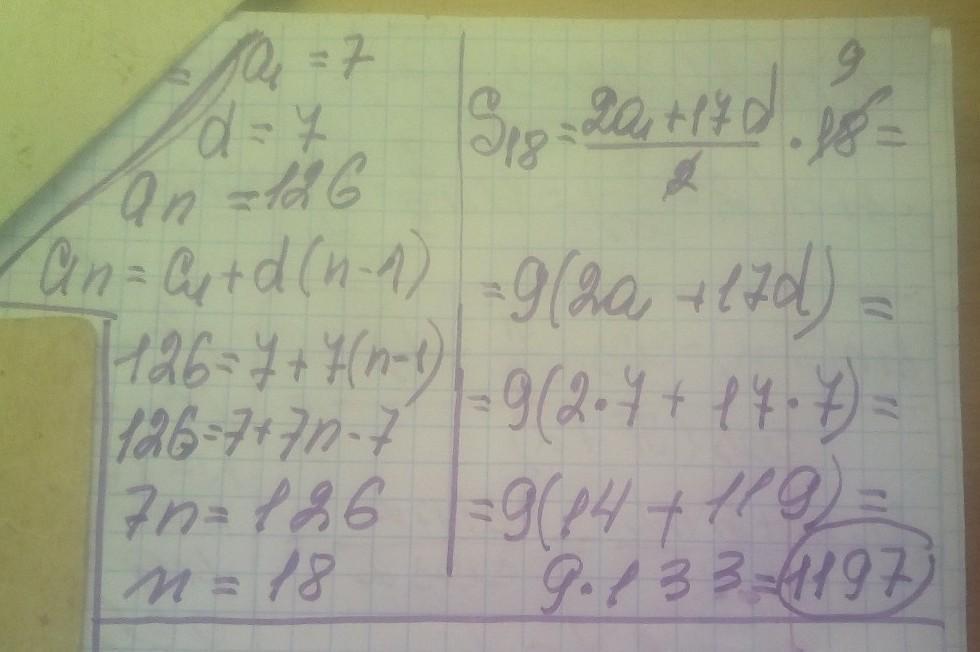 = a₁ = 7
d = 7
an = 126
an = a₁ + d(n-1)
126 = 7 + 7(n-1)
126 = 7 + 7n - 7
7n = 126
n = 18
9
S₁₈ = (2a₁ + 17d)/2 · 18 =
= 9(2a₁ + 17d) =
= 9(2·7 + 17·7) =
= 9(14 + 119) =
9·133 = 1197